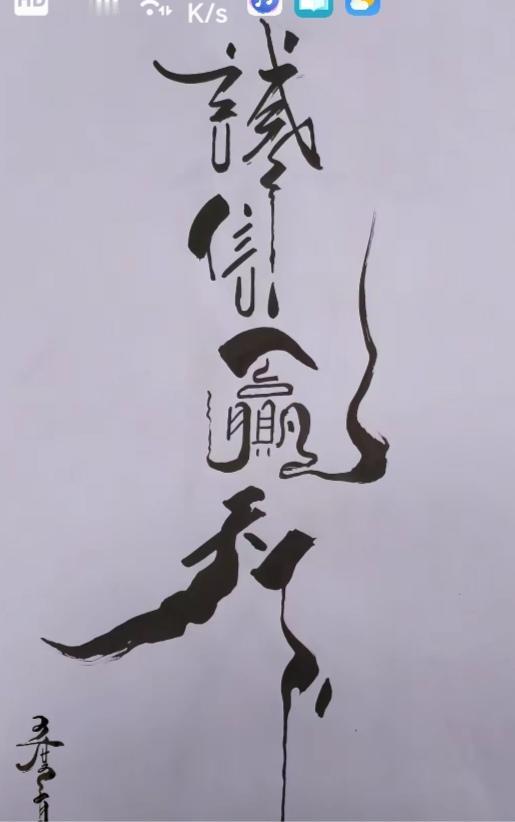 HD
K/s
誠信贏天下